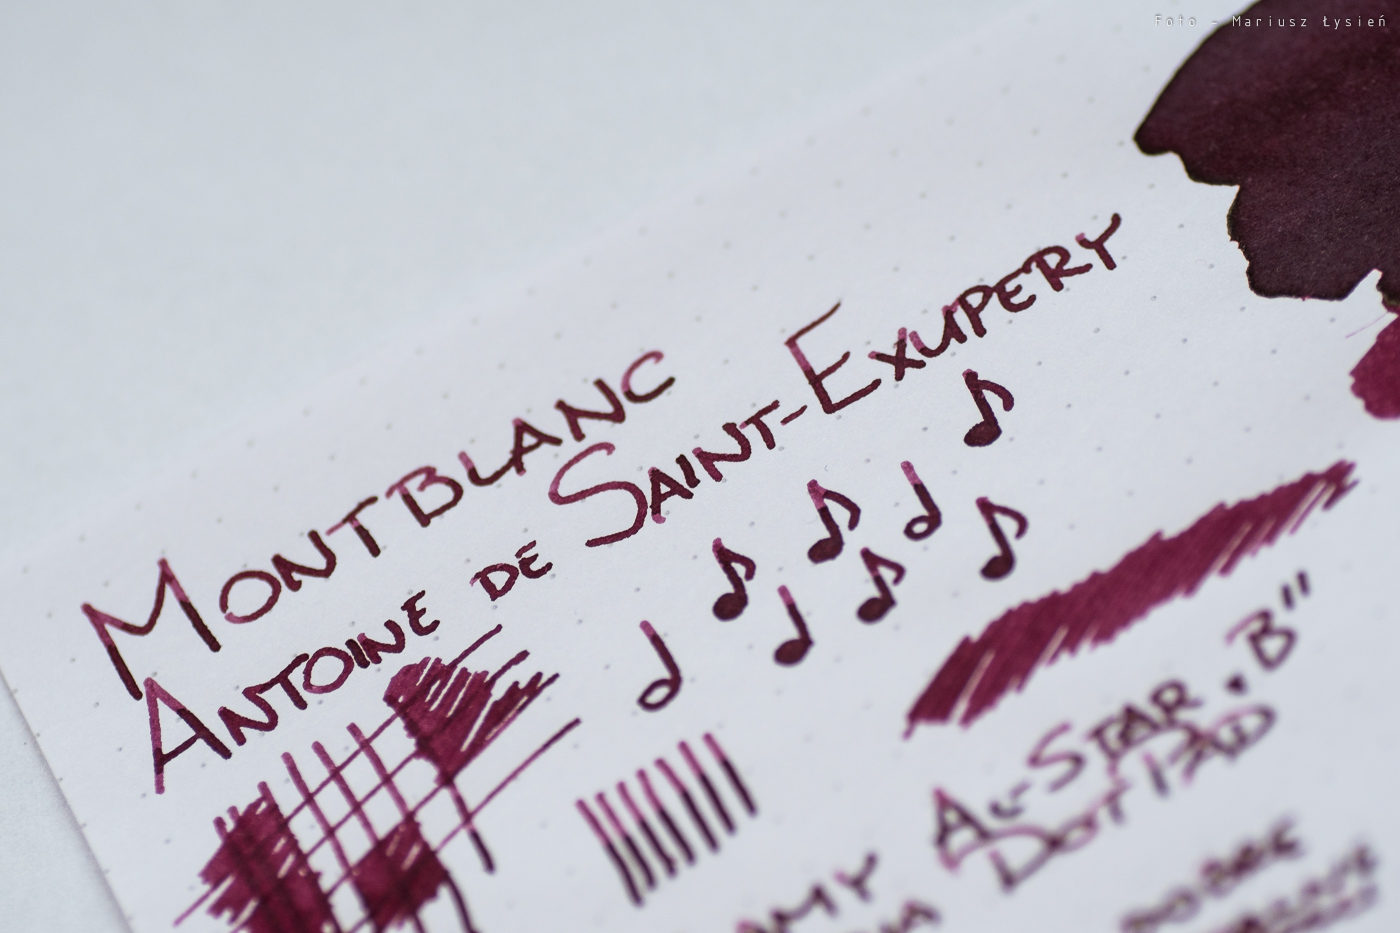 Foto - Mariusz Łysień
MONTBLANC
ANTOINE DE SAINT-EXUPERY
AL-STAR „B"
DOT PAD